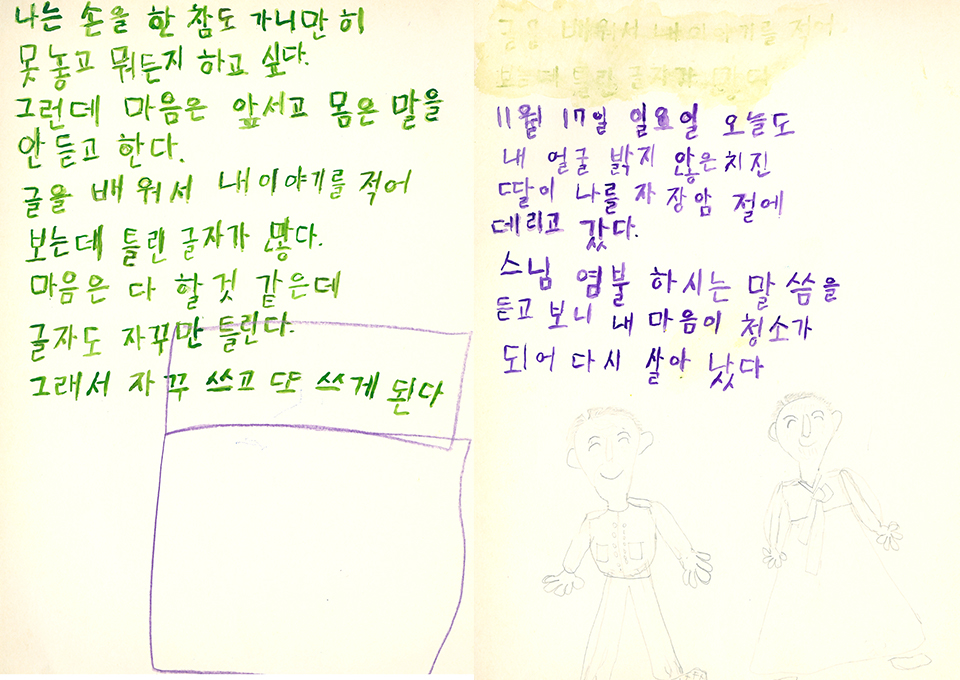 나는 손을 한 참도 가니만히
못놓고 뭐든지 하고 싶다.
그런데 마음은 앞서고 몸은 말을
안 듣고 한다.
글을 배워서 내 이야기를 적어
보는데 틀린 글자가 많다.
마음은 다 할것 같은데
글자도 자꾸만 틀린다.
그래서 자꾸 쓰고 또 쓰게 된다
글을 배워서 내 이야기를 적어
보는데 틀린 글자가
11월 17일 일요일 오늘도
내 얼굴 밝지 않은치진
딸이 나를 자 장암 절에
데리고 갔다.
스님 염불 하시는 말 씀을
듣고 보니 내 마음이 청소가
되어 다시 살아 났다